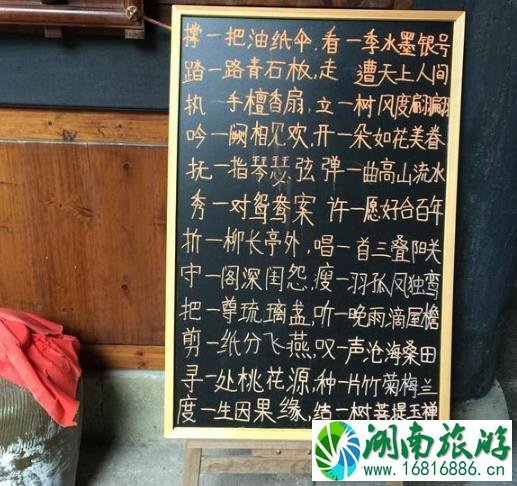 撑一把油纸伞,看一季水墨银号
踏一路青石板,走 遭天上人间
执 手檀香扇,立一树风度翩翩
吟一阙相见欢,开一朵如花美眷
抚一指琴瑟弦 弹一曲高山流水
秀一对鸳鸯案 许一愿好合百年
折一柳长亭外,唱一首三叠阳关
守一阁深闺怨,瘦一羽孤凤独鸾
把一尊琉璃盏,听一晚雨滴屋檐
剪一纸分飞燕,叹一声沧海桑田
寻一处桃花源,种一片竹菊梅兰
度一生因果缘,结一树菩提玉禅
湖南旅游
www.16816886.cn